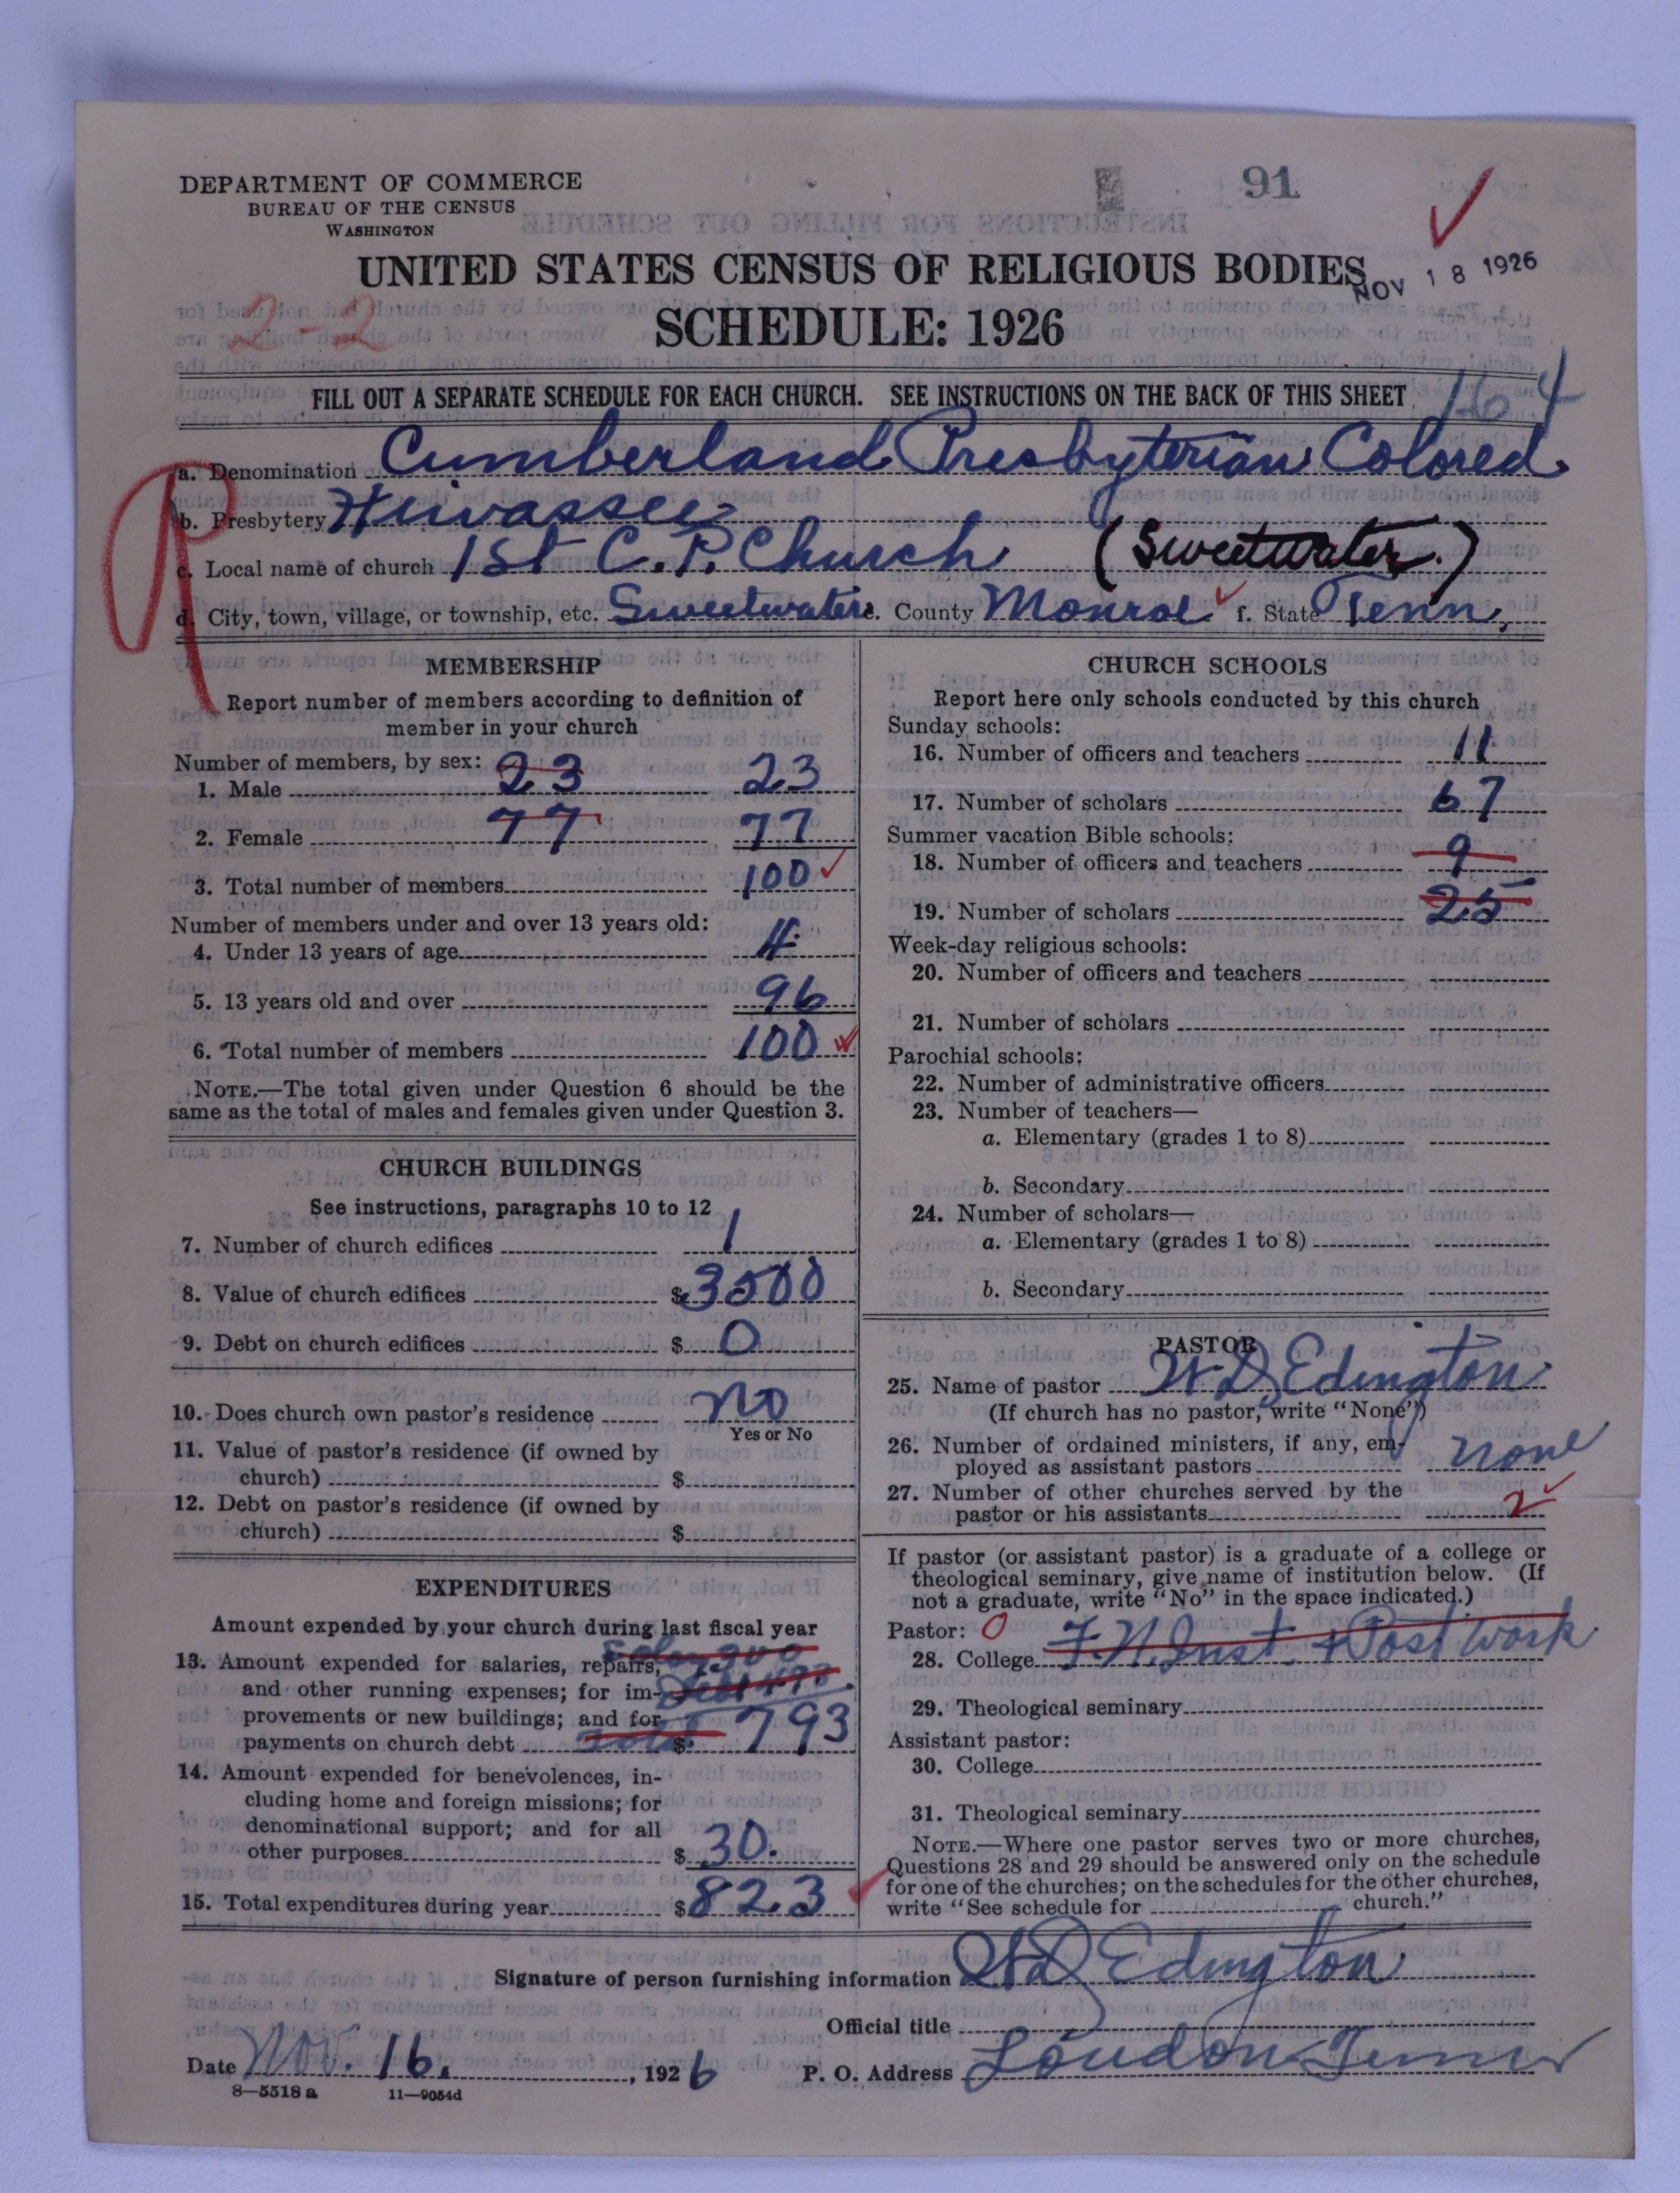 DEPARTMENT OF COMMERCE
BUREAU OF THE CENSUS
WASHINGTON
91
UNITED STATES CENSUS OF RELIGIOUS BODIES
NOV 18 1926
2-2
SCHEDULE: 1926
FILL OUT A SEPARATE SCHEDULE FOR EACH CHURCH. SEE INSTRUCTIONS ON THE BACK OF THIS SHEET
164
a. Denomination Cumberland Presbyterian Colored
b. Presbytery Hiwassee
c. Local name of church 1st C. P. Church (Sweetwater.)
d. City, town, village, or township, etc. Sweetwater e. County Monroe f. State Tenn.
MEMBERSHIP
Report number of members according to definition of
member in your church
Number of members, by sex:
1. Male 23 23
2. Female 77 77
3. Total number of members 100
Number of members under and over 13 years old:
4. Under 13 years of age 4
5. 13 years old and over 96
6. Total number of members 100
NOTE.—The total given under Question 6 should be the
same as the total of males and females given under Question 3.
CHURCH BUILDINGS
See instructions, paragraphs 10 to 12
7. Number of church edifices 1
8. Value of church edifices $ 3500
9. Debt on church edifices $ 0
10. Does church own pastor's residence no
Yes or No
11. Value of pastor's residence (if owned by
church) $
12. Debt on pastor's residence (if owned by
church) $
EXPENDITURES
Amount expended by your church during last fiscal year
13. Amount expended for salaries, repairs,
and other running expenses; for im-
provements or new buildings; and for
payments on church debt total $ 793
14. Amount expended for benevolences, in-
cluding home and foreign missions; for
denominational support; and for all
other purposes $ 30.
15. Total expenditures during year $ 823
CHURCH SCHOOLS
Report here only schools conducted by this church
Sunday schools:
16. Number of officers and teachers 11
17. Number of scholars 67
Summer vacation Bible schools:
18. Number of officers and teachers 9
19. Number of scholars 25
Week-day religious schools:
20. Number of officers and teachers
21. Number of scholars
Parochial schools:
22. Number of administrative officers
23. Number of teachers—
a. Elementary (grades 1 to 8)
b. Secondary
24. Number of scholars—
a. Elementary (grades 1 to 8)
b. Secondary
PASTOR
25. Name of pastor W D Edington
(If church has no pastor, write "None")
26. Number of ordained ministers, if any, em-
ployed as assistant pastors none
27. Number of other churches served by the
pastor or his assistants 2
If pastor (or assistant pastor) is a graduate of a college or
theological seminary, give name of institution below. (If
not a graduate, write "No" in the space indicated.)
Pastor: 0
28. College F. N. Inst. + Post Work
29. Theological seminary
Assistant pastor:
30. College
31. Theological seminary
NOTE.—Where one pastor serves two or more churches,
Questions 28 and 29 should be answered only on the schedule
for one of the churches; on the schedules for the other churches,
write "See schedule for church."
Signature of person furnishing information W D Edington
Official title
Date Nov. 16., 1926 P. O. Address Loudon Tenn
8—5518a 11—9054d